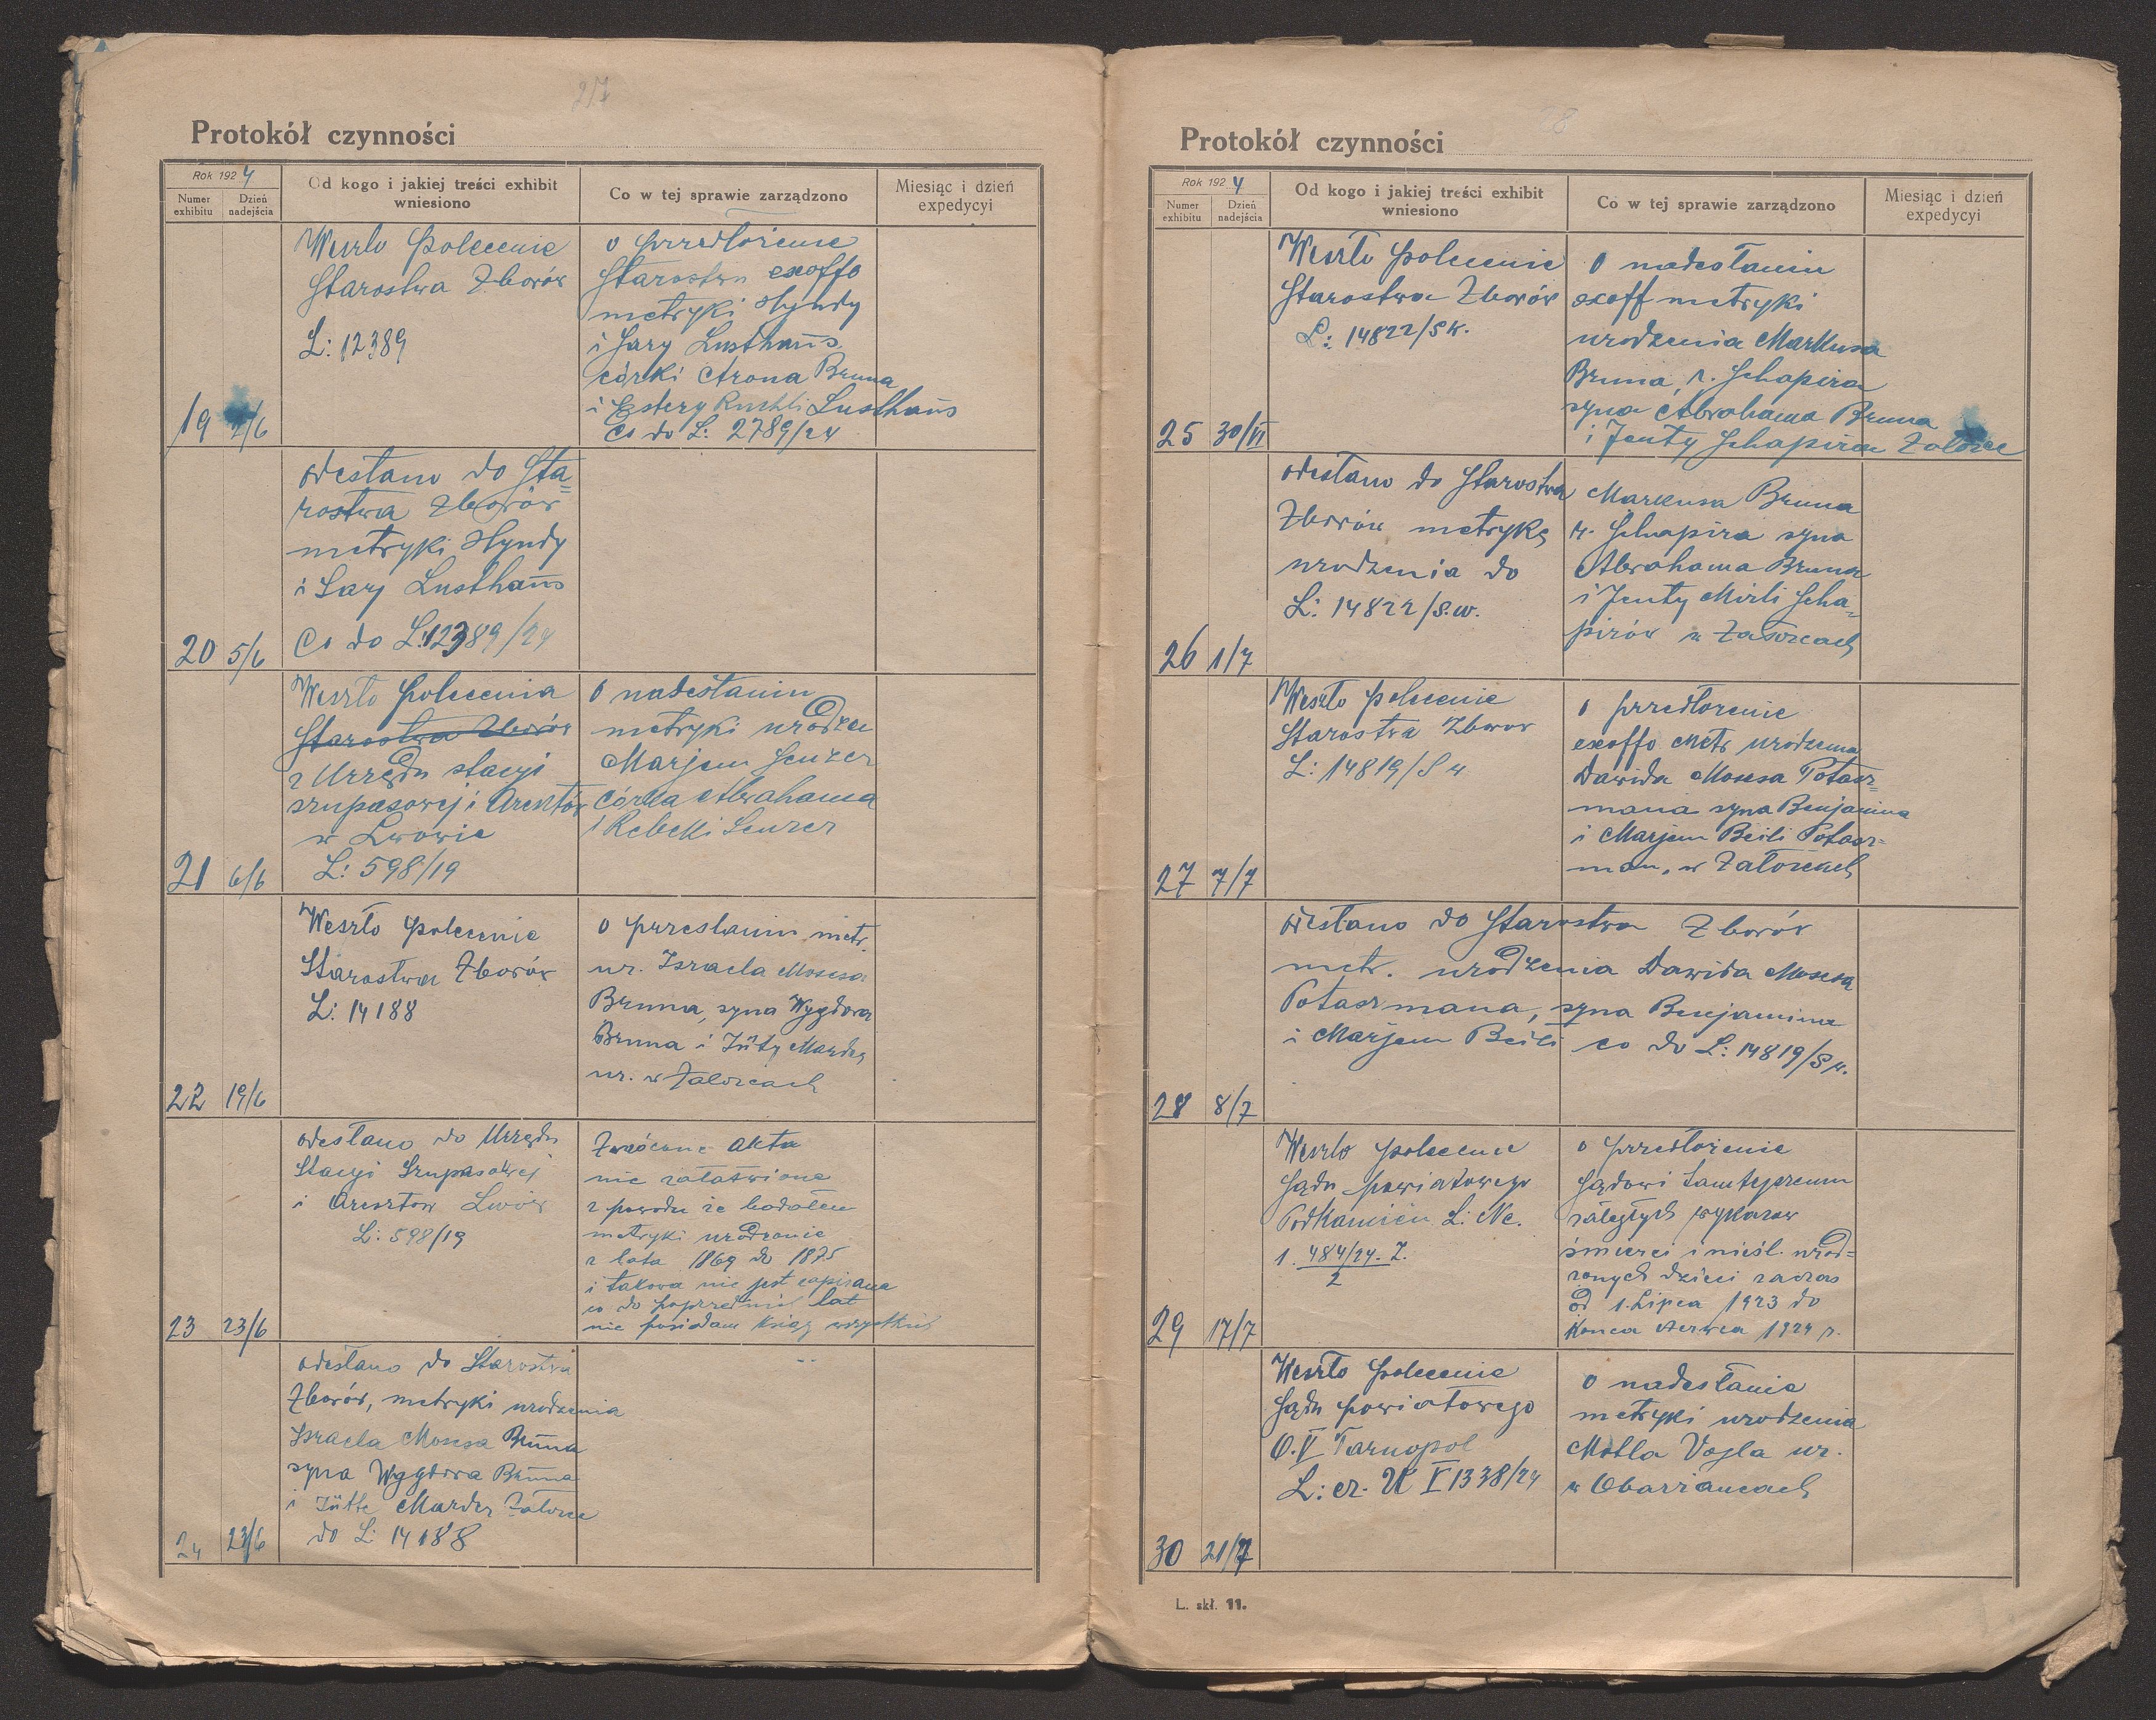 27
Protokół czynności
Rok 1924
Numer exhibitu
Dzień nadejścia
Od kogo i jakiej treści exhibit wniesiono
Co w tej sprawie zarządzono
Miesiąc i dzień expedycyi
19 2/6
Weszło polecenie
Starostwa Zborów
L: 12389
o przedłożenie
Starostwu exoffo
metryki Hyndy
i Sary Lusthaus
córki Arona Bruna
i Estery Ruchli Lusthaus
co do L: 2789/24
20 5/6
odesłano do Sta=
rostwa Zborów
metryki Hyndy
i Sary Lusthaus
co do L: 12389/24
21 6/6
Weszło polecenia
Starostwa Zborów
z Urzędu stacyi
szupasowej i Aresztów
w Lwowie
L: 598/19
o nadesłaniu
metryki urodzen
Marjem Senzer
córka Abrahama
i Rebeki Senzer
22 19/6
Weszło polecenie
Starostwa Zborów
L: 14188
o przesłaniu metr.
ur. Israela Mosesa
Bruna, syna Wygdora
Bruna i Jüty Marder
ur. w Załozcach
23 23/6
odesłano do Urzędu
Stacyi Szupasowej
i Aresztow Lwów
L: 598/19
Zwrócone Akta
nie załatwione
z powodu że badałem
metryki urodzenie
z lata 1869 do 1875
i takowa nie jest zapisana
co do poprzednich lat
nie posiadam ksiąg wszystkich
24 23/6
odesłano do Starostwa
Zborów, metryki urodzenia
Israela Mosesa Bruna
syna Wygdora Bruna
i Jütte Marder Załozce
do L: 14188
28
Protokół czynności
Rok 1924
Numer exhibitu
Dzień nadejścia
Od kogo i jakiej treści exhibit wniesiono
Co w tej sprawie zarządzono
Miesiąc i dzień expedycyi
25 30/VI
Weszło polecenie
Starostwa Zborów
L: 14822/Sw.
o nadesłaniu
exoff metryki
urodzenia Markusa
Bruna, r. Schapira
syna Abrahama Bruna
i Jenty Schapira Załozce
26 1/7
odesłano do Starostwa
Zborów metrykę
urodzenia do
L: 14822/S.w.
Markusa Bruna
r. Schapira syna
Abrahama Bruna
i Jenty Mirli Scha=
pirów w Załozcach
27 7/7
Weszło polecenie
Starostwa Zborow
L: 14819/S w
o przedłozenie
exoffo metr urodzenia
Dawida Mosesa Potasz=
mana syna Benjamina
i Marjem Beili Potasz=
man, w Załozcach
28 8/7
odesłano do Starostwa Zborów
metr. urodzenia Dawida Mosesa
Potaszmana, syna Benjamina
i Marjem Beili co do L: 14819/S w.
29 17/7
Weszło polecenie
Sądu powiatowego
Podkamień L: Nc.
1. 484/24. Z.
2
o przedłożenie
Sądowi Tamtejszemu
zaległych wykazow
śmierci i nieśl. urod=
zonych dzieci zaczas
od 1. Lipca 1923 do
końca czerwca 1924 r.
30 21/7
Weszło polecenie
Sądu powiatowego
O. V Tarnopol
L: cz. U V 1338/24
o nadesłanie
metryki urodzenia
Motla Vogla ur.
w Obarzancach
L. skł. 11.